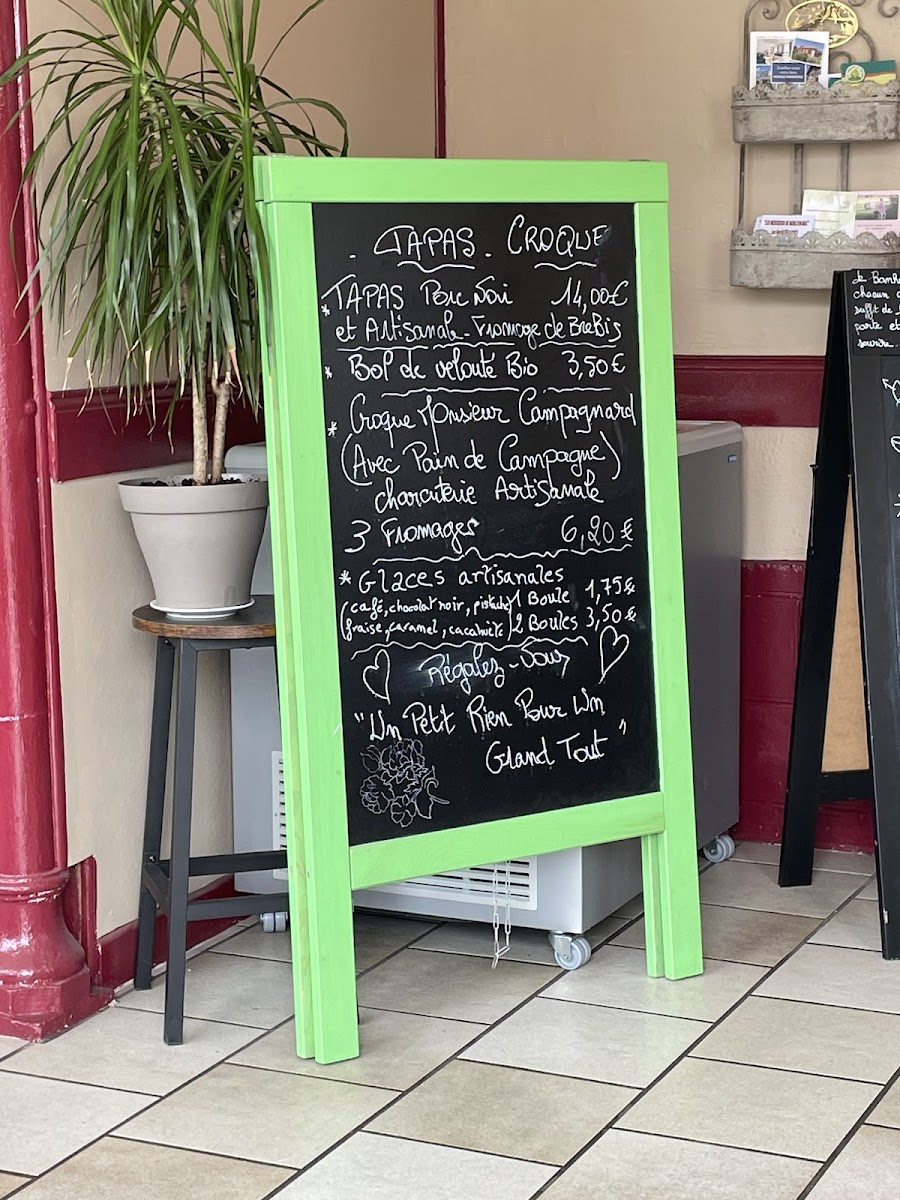 . TAPAS . CROQUE
* TAPAS Porc Noir 14,00€
et Artisanale Fromage de BreBis
* Bol de velouté Bio 3,50 €
* Croque Monsieur Campagnard
(Avec Pain de Campagne)
charcuterie Artisanale
3 Fromages 6,20 €
* Glaces artisanales
(café, chocolat noir, pistache 1 Boule 1,75€
fraise, caramel, cacahuète) 2 Boules 3,50€
Régalez-Vous
"Un Petit Rien Pour Un
Grand Tout"
chacun
suffit de
porte et
sourire..